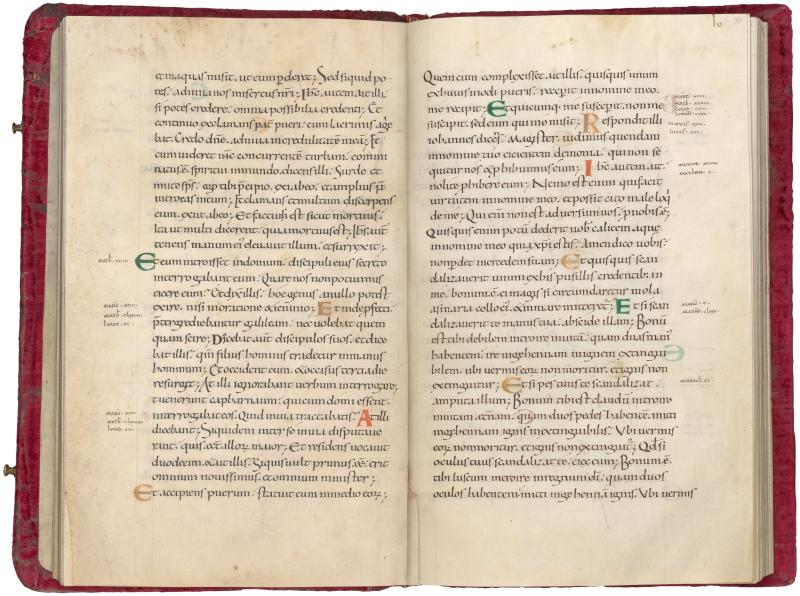 et in aquas misit. ut eum p̄deret; Sed si quid po-
tes. adiuva nos misertus nr̄i; Ihs̄ autem ait illi.
si potes credere. omnia possibilia credenti; Et
continuo exclamans pat̄ pueri. cum lacrimis aie-
bat. Credo dn̄e. adiuva incredulitatē meā; Et
cum videret ihs̄ concurrentē turbam. commi-
natus ē spiritui inmundo. dicens illi. Surde et
mute sp̄s. ego tibi p̄cipio. exi ab eo. et amplius n̄
introeas in eum; Et clamans et multum discerpens
eum. exiit ab eo; Et factus est sicut mortuus.
Ita ut multi dicerent. quia mortuus est; Ihs̄ aut̄
tenens manum ei' elevavit illum. et surrexit;
Et cum introisset in domum. discipuli eius secreto
interrogabant eum. Quare nos non potuimus
eicere eum. Et dix̄ illis. hoc genus in nullo potest
exire. nisi in oratione & ieiunio; Et inde p̄fecti.
p̄tergrediebantur galileam. nec volebat quem
quam scire; Docebat aut̄ discipulos suos. et dice
bat illis. qm̄ filius hominis tradetur in manus
hominum; Et occident eum. & occisus tertia die
resurget; At illi ignorabant verbum. interrogare;
Et venerunt capharnaum. qui cum domi essent.
interrogabat eos. Quid in via tractabatis. At illi
dicebant; Siquidem inter se in via disputave
rant. quis eēt illoꝝ maior; Et residens vocavit
duodecim. & ait illis. Si quis vult primus eē. erit
omnium novissimus. et omnium minister;
Et accipiens puerum. statuit eum in medio eoꝝ;
Quem cum complexus eēt. ait illis. quisquis unum
ex huiusmodi pueris. recepit in nomine meo.
me recipit; Et quicumq; me susceperit. non me
suscipit. sed eum qui me misit; Respondit illi
iohannes dicēs. Magister. vidimus quendam
in nomine tuo eicientem demonia. qui non se-
quitur nos. & p̄hibuimus eum; Ihs̄ autem ait.
nolite p̄hibere eum; Nemo est enim qui faciat
virtutem in nomine meo. et possit cito male loq̄
de me; Qui enī non est adversum vos. p̄ vobis ē;
Quisquis enim potū dederit vob̄ calicem aquę
in nomine meo quia xp̄i estis. Amen dico vobis.
non p̄det mercedem suam; Et quisquis scan
dalizaverit unum ex his pusillis credentib; in
me. bonum ē ei magis si circumdaretur mola
asinaria collo ei'. & in mare mitteret'; Et si scan
dalizaverit te manus tua. abscide illam; Bonū
est tibi debilem introire in vitam. quam duas man'
habentem. ire in gehennam in ignem inextingui
bilem. ubi vermis eoꝝ non moritur. et ignis non
extinguitur; Et si pes tuus te scandalizat.
amputa illum; Bonum ē tibi claudū introire
in vitam ęt̄nam. quam duos pedes habentē mitti
in gehennam ignis inextinguibilis. Ubi vermis
eoꝝ non moritur. et ignis non extinguit'; Qd̄ si
oculus tuus scandalizat te. eice eum; Bonum ē
tibi luscum introire in regnum dī. quam duos
oculos habentem mitti in gehennā ignis. Ubi vermis